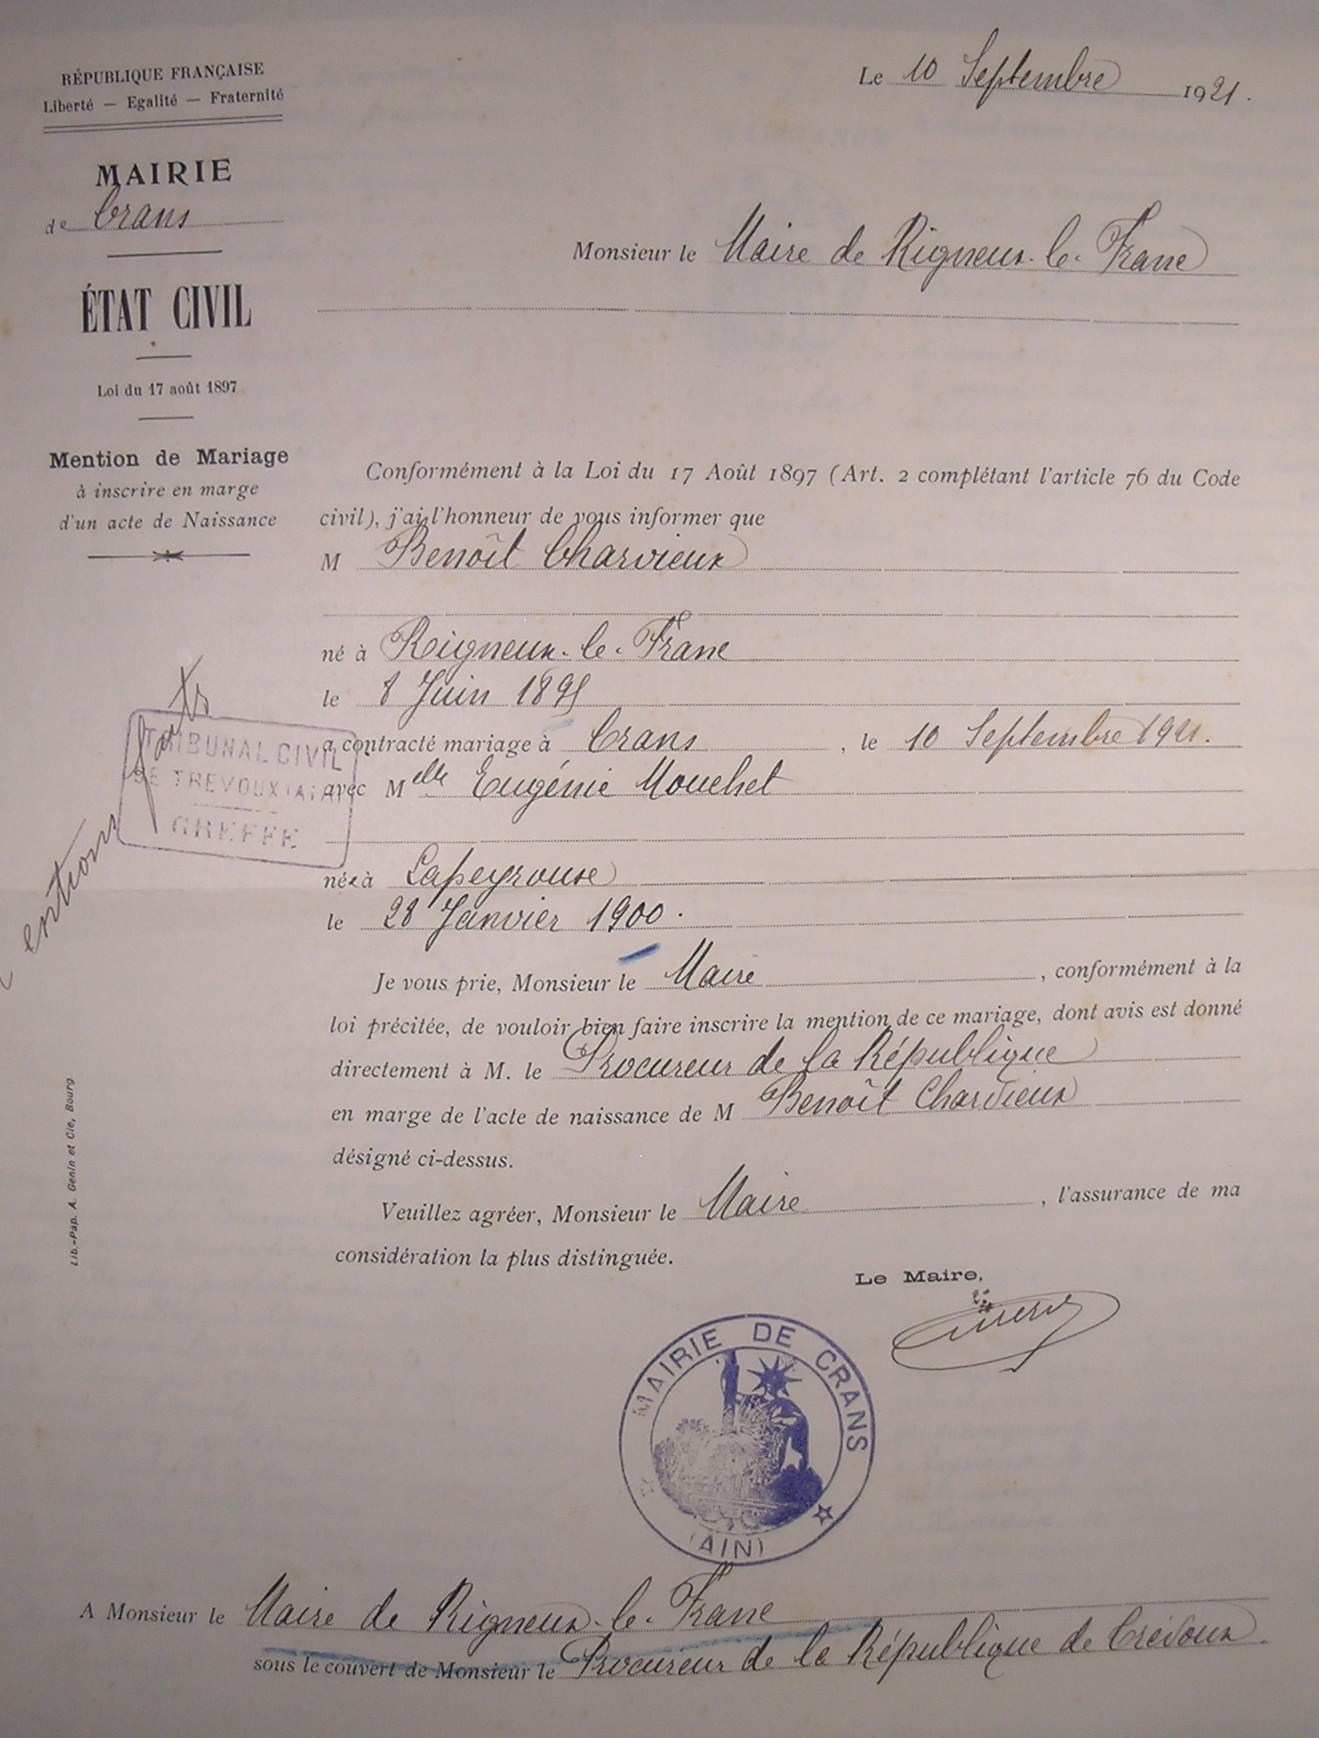 RÉPUBLIQUE FRANÇAISE
Liberté — Egalité — Fraternité
MAIRIE
de Crans
ÉTAT CIVIL
Loi du 17 août 1897
Mention de Mariage
à inscrire en marge
d'un acte de Naissance
Le 10 Septembre 1921.
Monsieur le Maire de Rigneux-le-Franc
Conformément à la Loi du 17 Août 1897 (Art. 2 complétant l'article 76 du Code
civil), j'ai l'honneur de vous informer que
M Benoît Charvieux
né à Rigneux-le-Franc
le 8 Juin 1895
a contracté mariage à Crans, le 10 Septembre 1921.
avec Melle Eugénie Mouchet
née à Lapeyrouse
le 28 Janvier 1900.
Je vous prie, Monsieur le Maire, conformément à la
loi précitée, de vouloir bien faire inscrire la mention de ce mariage, dont avis est donné
directement à M. le Procureur de la République
en marge de l'acte de naissance de M Benoît Charvieux
désigné ci-dessus.
Veuillez agréer, Monsieur le Maire, l'assurance de ma
considération la plus distinguée.
Le Maire,
MAIRIE DE CRANS
(AIN)
A Monsieur le Maire de Rigneux-le-Franc
sous le couvert de Monsieur le Procureur de la République de Trévoux.
TRIBUNAL CIVIL
DE TREVOUX (AIN)
GREFFE
Lib.-Pap. A. Genin et Cie, Bourg